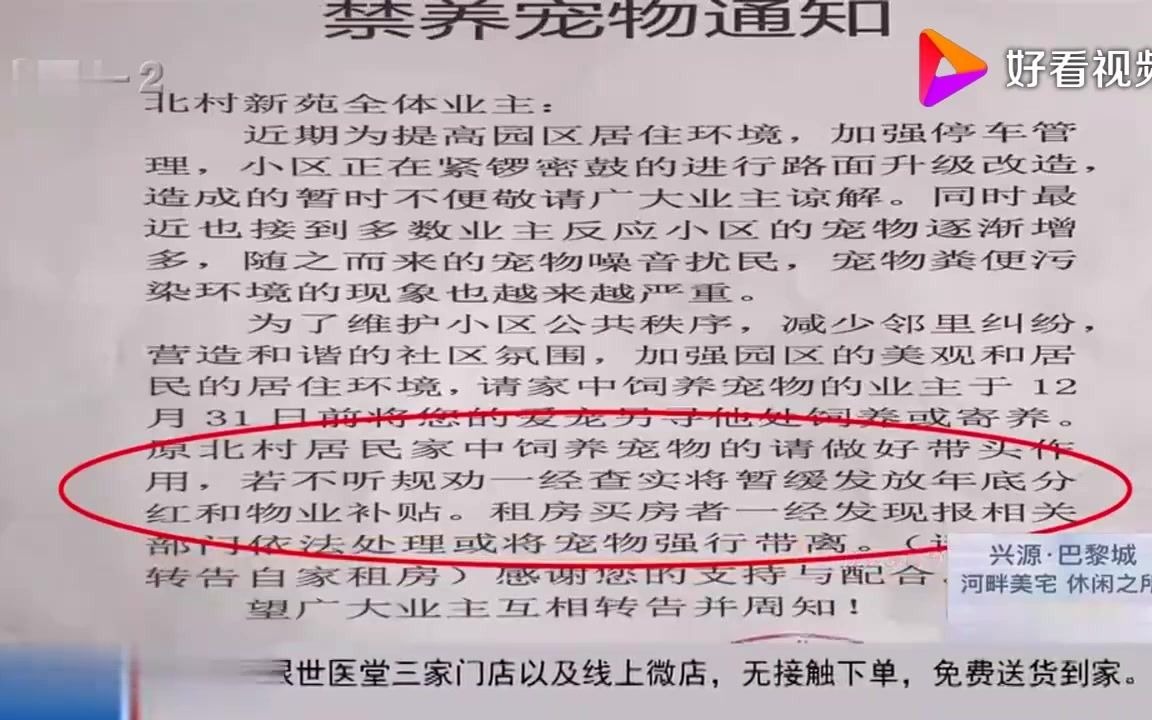 禁养宠物通知
好看视频
2
北村新苑全体业主：
近期为提高园区居住环境，加强停车管
理，小区正在紧锣密鼓的进行路面升级改造，
造成的暂时不便敬请广大业主谅解。同时最
近也接到多数业主反应小区的宠物逐渐增
多，随之而来的宠物噪音扰民，宠物粪便污
染环境的现象也越来越严重。
为了维护小区公共秩序，减少邻里纠纷，
营造和谐的社区氛围，加强园区的美观和居
民的居住环境，请家中饲养宠物的业主于 12
月 31 日前将您的爱宠另寻他处饲养或寄养。
原北村居民家中饲养宠物的请做好带头作
用，若不听规劝一经查实将暂缓发放年底分
红和物业补贴。租房买房者一经发现报相关
部门依法处理或将宠物强行带离。（
转告自家租房）感谢您的支持与配合
望广大业主互相转告并周知！
兴源·巴黎城
河畔美宅 休闲之所
世医堂三家门店以及线上微店，无接触下单，免费送货到家。